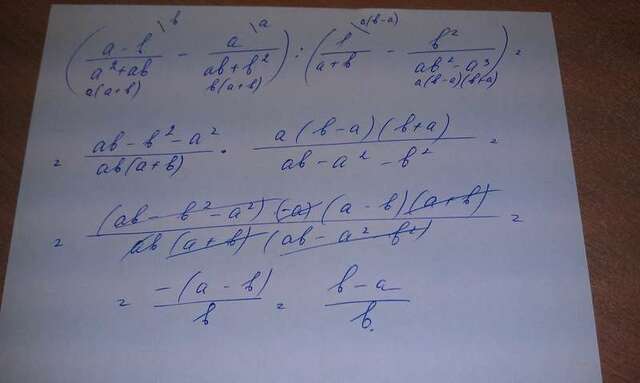 ( (a-b)/(a²+ab) \b - a/(ab+b²) \a ) : ( 1/(a+b) \a(b-a) - b²/(ab²-a³) ) =
a(a+b) b(a+b) a(b-a)(b+a)
= (ab-b²-a²)/(ab(a+b)) · (a(b-a)(b+a))/(ab-a²-b²) =
= ((ab-b²-a²)(-a)(a-b)(a+b))/(ab(a+b)(ab-a²-b²)) =
= (-(a-b))/b = (b-a)/b.